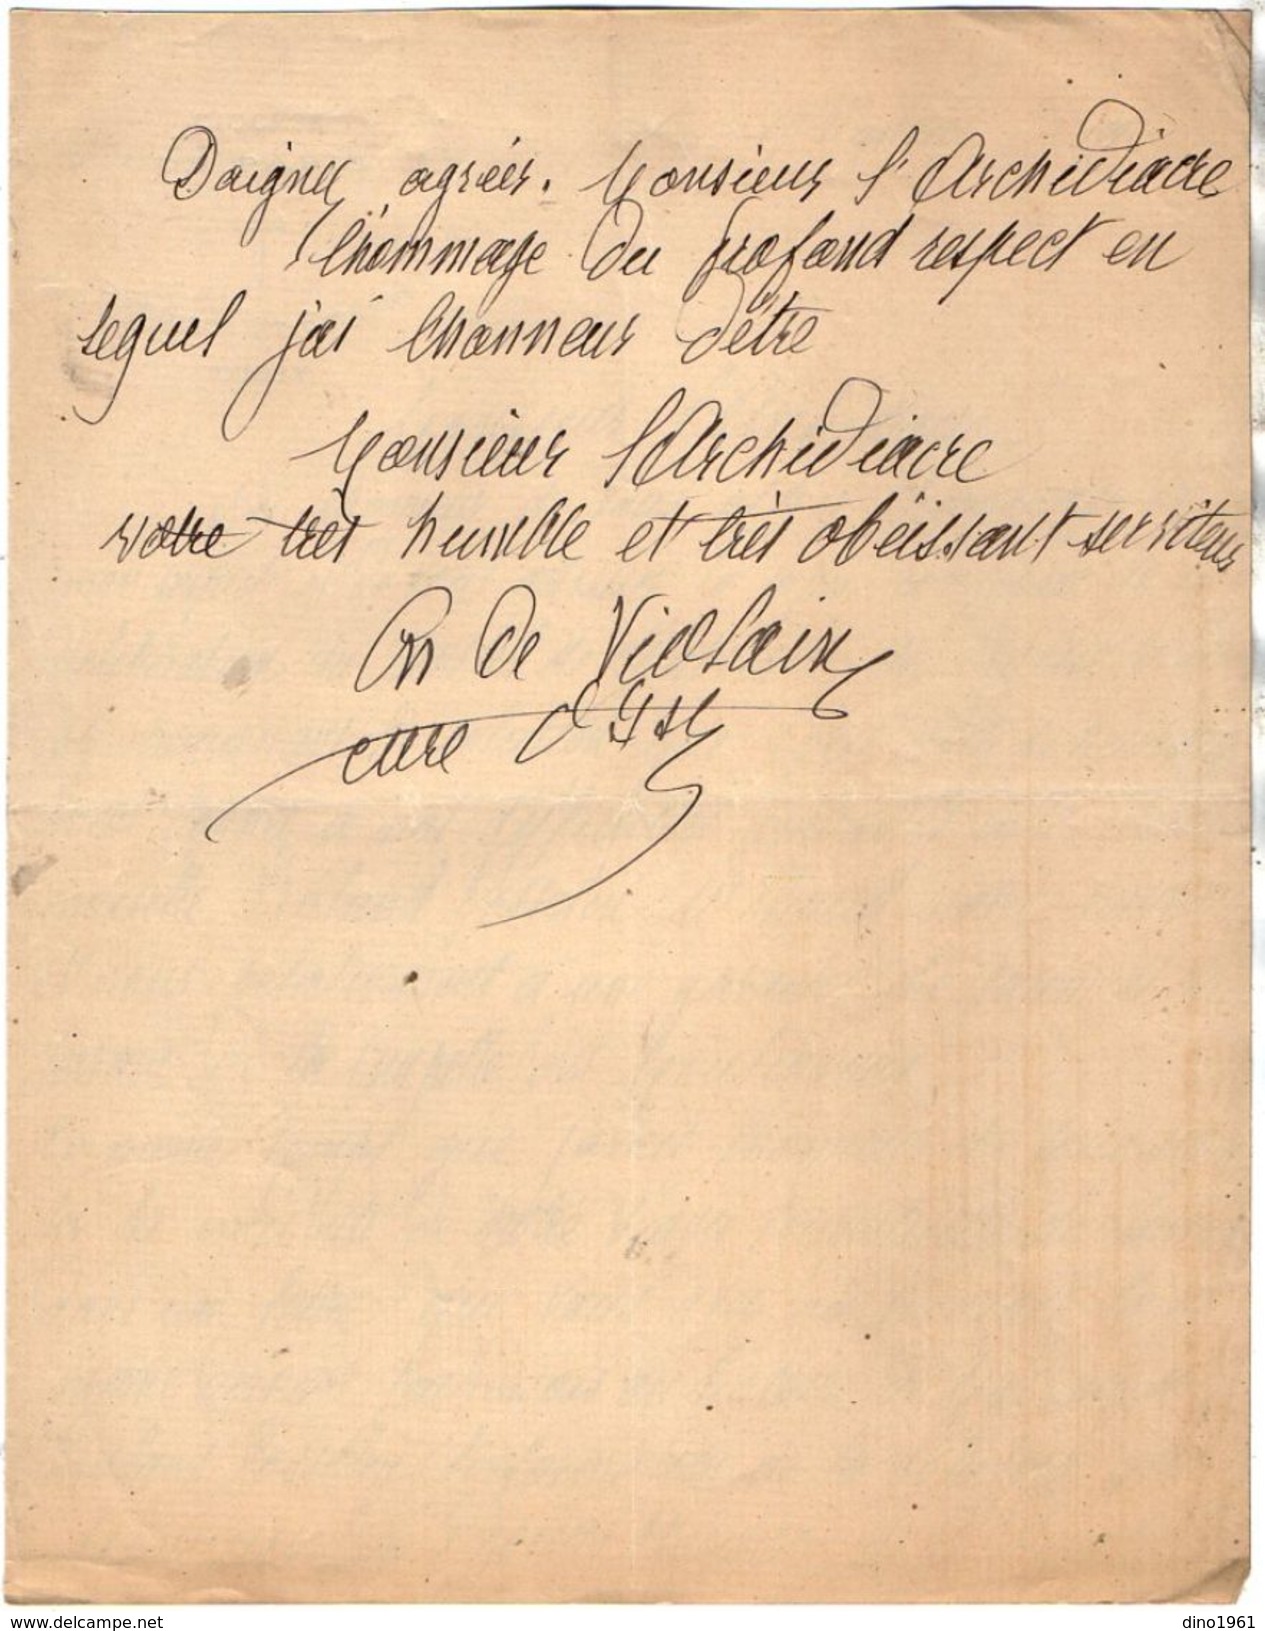 Daignez agréer. Monsieur l'Archidiacre
l'hommage du profond respect en
lequel j'ai l'honneur d'être
Monsieur l'Archidiacre
votre très humble et très obéissant serviteur
de Violaine
curé d'
www.delcampe.net
dino1961